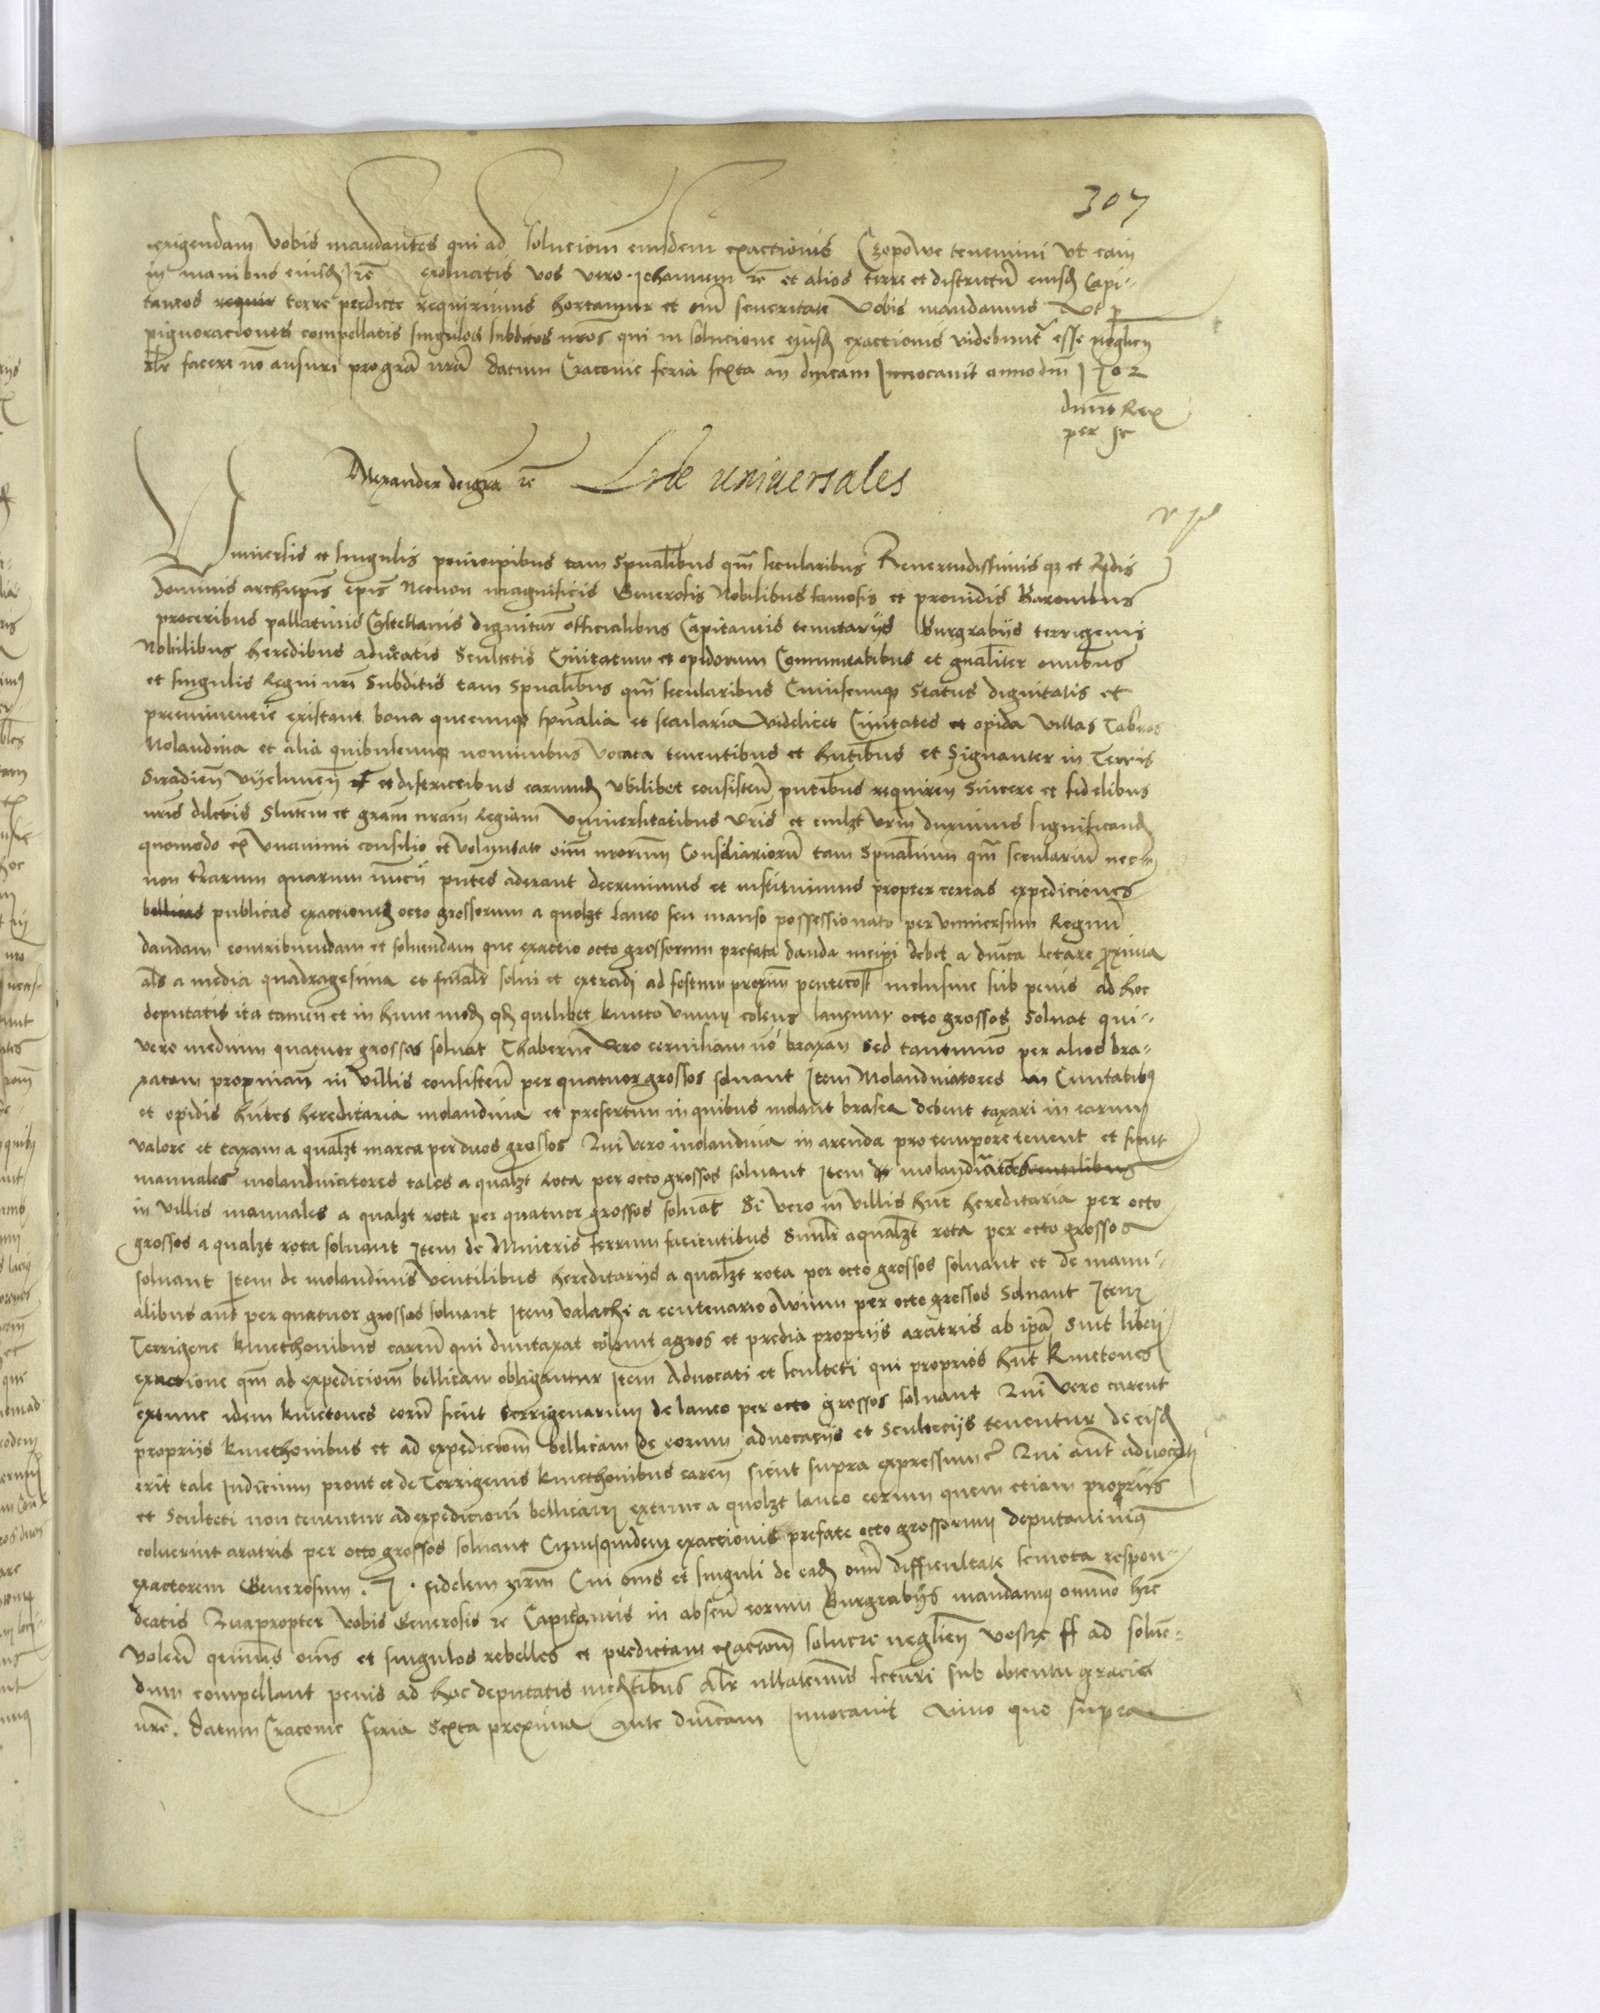 307
exigendam Vobis mandantes qui ad soluciom eiusdem exactionis Czopowe tenemini Ut eam
in manibus eiusd re exoluatis vos vero Johannem re et alios terre et districtu eiusd Capi-
taneos requir terre predicte requirimus hortamur et omi seueritate Vobis mandamus Ut p
pignoraciones compellatis singulos subditos nros qui in solucione eiusd exactionis videbunt esse neglien
alr facere no ausuri pro gra nra Datum Cracouie feria sexta an dnicam Inuocauit anno dni 1502
dnus Rex
per se
Alexander dei gra re Lrae uniuersales
Uniuersis et singulis principibus tam Spualibus qm secularibus Reuerendissimis qz et Rdis
Dominis archiepis epis Necnon magnificis Generosis Nobilibus famosis et prouidis Baronibus
proceribus pallatinis Castellanis dignitar officialibus Capitaneis tenutarijs Burgrabijs terrigenis
Nobilibus heredibus aduocatis Scultetis Ciuitatum et opidorum Comunitatibus et gnaliter omibus
et singulis Regni nri Subditis tam Spualibus qm secularibus Cuiuscumqz Status dignitatis et
preeminencie existant bona quecumqz spualia et secularia videlicet Ciuitates et opida Villas Tabnas
Molandina et alia quibuscumqz nominibus Vocata tenentibus et hntibus et Signanter in Terris
Siradien Vijelunen et districtibus earumd Ubilibet consisten pntibus requiren Sincere et fidelibus
nris dilectis Slutem et gram nram Regiam Uniuersitatibus Vris et cuilzt Vrm duximus significand
quomodo ex Unanimi consilio et Voluntate oim nrorum Consiliariorum tam Spualium qm secularium nec-
non trarum quarum nuncij pntes aderant decreuimus et instituimus propter certas expediciones
bellicas publicas exactiones octo grossorum a quolzt laneo seu manso possessionato per Uniuersum Regnum
dandam contribuendam et soluendam que exactio octo grossorum prefata danda incipi debet a dnica letare proxima
als a media quadragesima et finalr solui et exercidi ad festum proxim pentecost inclusiue sub penis ad hoc
deputatis ita tamen et in hunc mod qd quilibet kmeto Unum colens laneum octo grossos Soluat qui-
vero medium quatuor grossos soluat Thaberne Vero ceruisiam no braxan Sed tantumo per alios bra-
xatam propinan in Villis consisten per quatuor grossos soluant Item Molandinatores in Ciuitatibus
et opidis hntes hereditaria molandina et presertim in quibus molant brasea debent taxari in earum
valore et taxam a qualzt marca per duos grossos Qui vero molandina in arenda pro tempore tenent et sunt
manuales molandinatores tales a qualzt Rota per octo grossos soluant Item de molandinatores Ventilibus
in Villis manuales a qualzt rota per quatuor grossos soluat Si vero in Villis hnt hereditaria per octo
grossos a qualzt rota soluant Item de Mineris ferrum facientibus Similr a qualzt rota per octo grossos
soluant Item de molandinis Ventilibus hereditarijs a qualzt rota per octo grossos soluant et de manu-
alibus ant per quatuor grossos soluant Item Valachi a centenario owium per octo grossos Soluant Item
Terrigene kmethonibus caren qui duntaxat colunt agros et predia proprijs aratris ab ipa Sint liberi
exactione qm ad expediciom bellicam obligantur Item Aduocati et sculteti qui proprios hnt Kmetones
extunc idem kmetones eoru sicut Terrigenarum de laneo per octo grossos soluant Qui vero carent
proprijs kmethonibus et ad expediciom bellicam de eorum aduocacijs et Sculteciis tenentur de eisd
erit tale Iudicium prout et de Terrigenis kmethonibus caren sicut supra expressum Qui ant aduocati
et Sculteti non tenentur ad expediciom bellicam extunc a quolzt laneo eorum quem etiam proprijs
coluerint aratris per octo grossos soluant Cuiusquidem exactionis prefate octo grossorum deputauimus
exactorem Generosum . J . fidelem nrm Cui oms et singuli de ead omi difficultate semota respon-
deatis Quapropter Vobis Generosis re Capitaneis in absen eorum Burgrabijs mandamus omnino hre
volen quatinus oms et singulos rebelles et predictam exactiom soluere neglien vestre ff ad soluen-
dum compellant penis ad hoc deputatis mediantibus Alr ullatenus fcturi sub obtentu gracie
nre. Datum Cracouie feria Sexta proxima Ante dnicam Inuocauit Anno quo supra